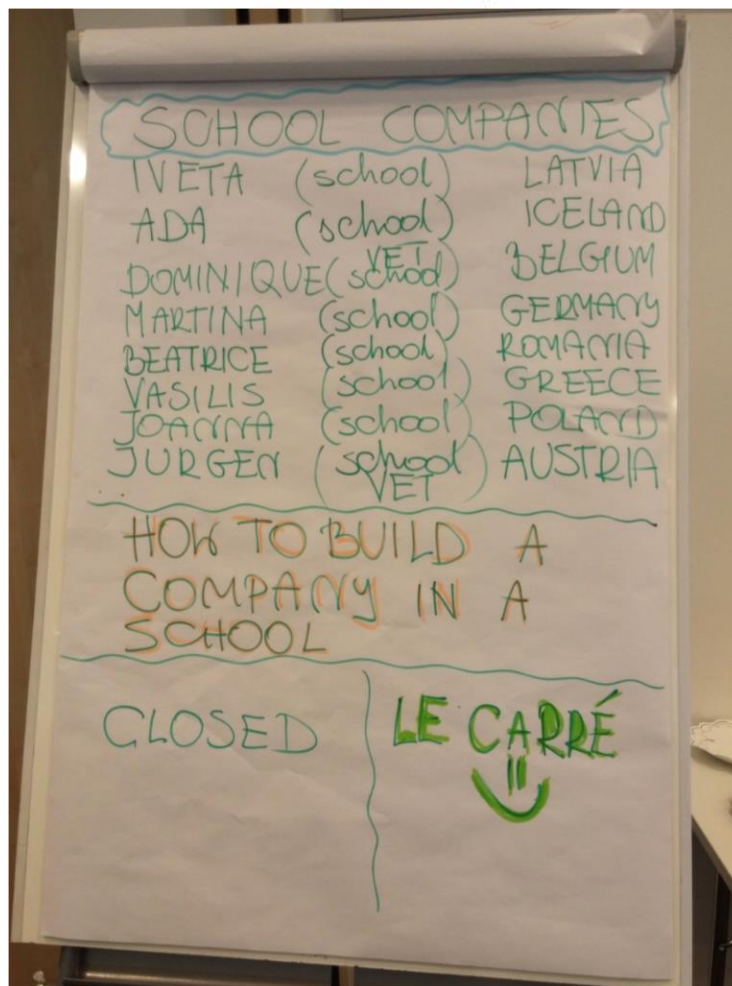 SCHOOL COMPANIES
IVETA (school) LATVIA
ADA (school) ICELAND
DOMINIQUE (school) VET BELGIUM
MARTINA (school) GERMANY
BEATRICE (school) ROMANIA
VASILIS (school) GREECE
JOANNA (school) POLAND
JURGEN (school VET) AUSTRIA
HOW TO BUILD A
COMPANY IN A
SCHOOL
CLOSED
LE CARRÉ